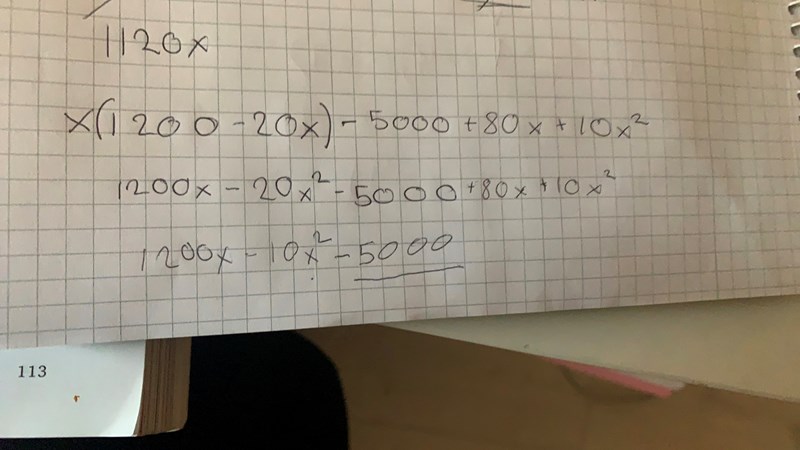 1120x
x(1200-20x)-5000+80x+10x²
1200x-20x²-5000+80x+10x²
1200x-10x²-5000
113